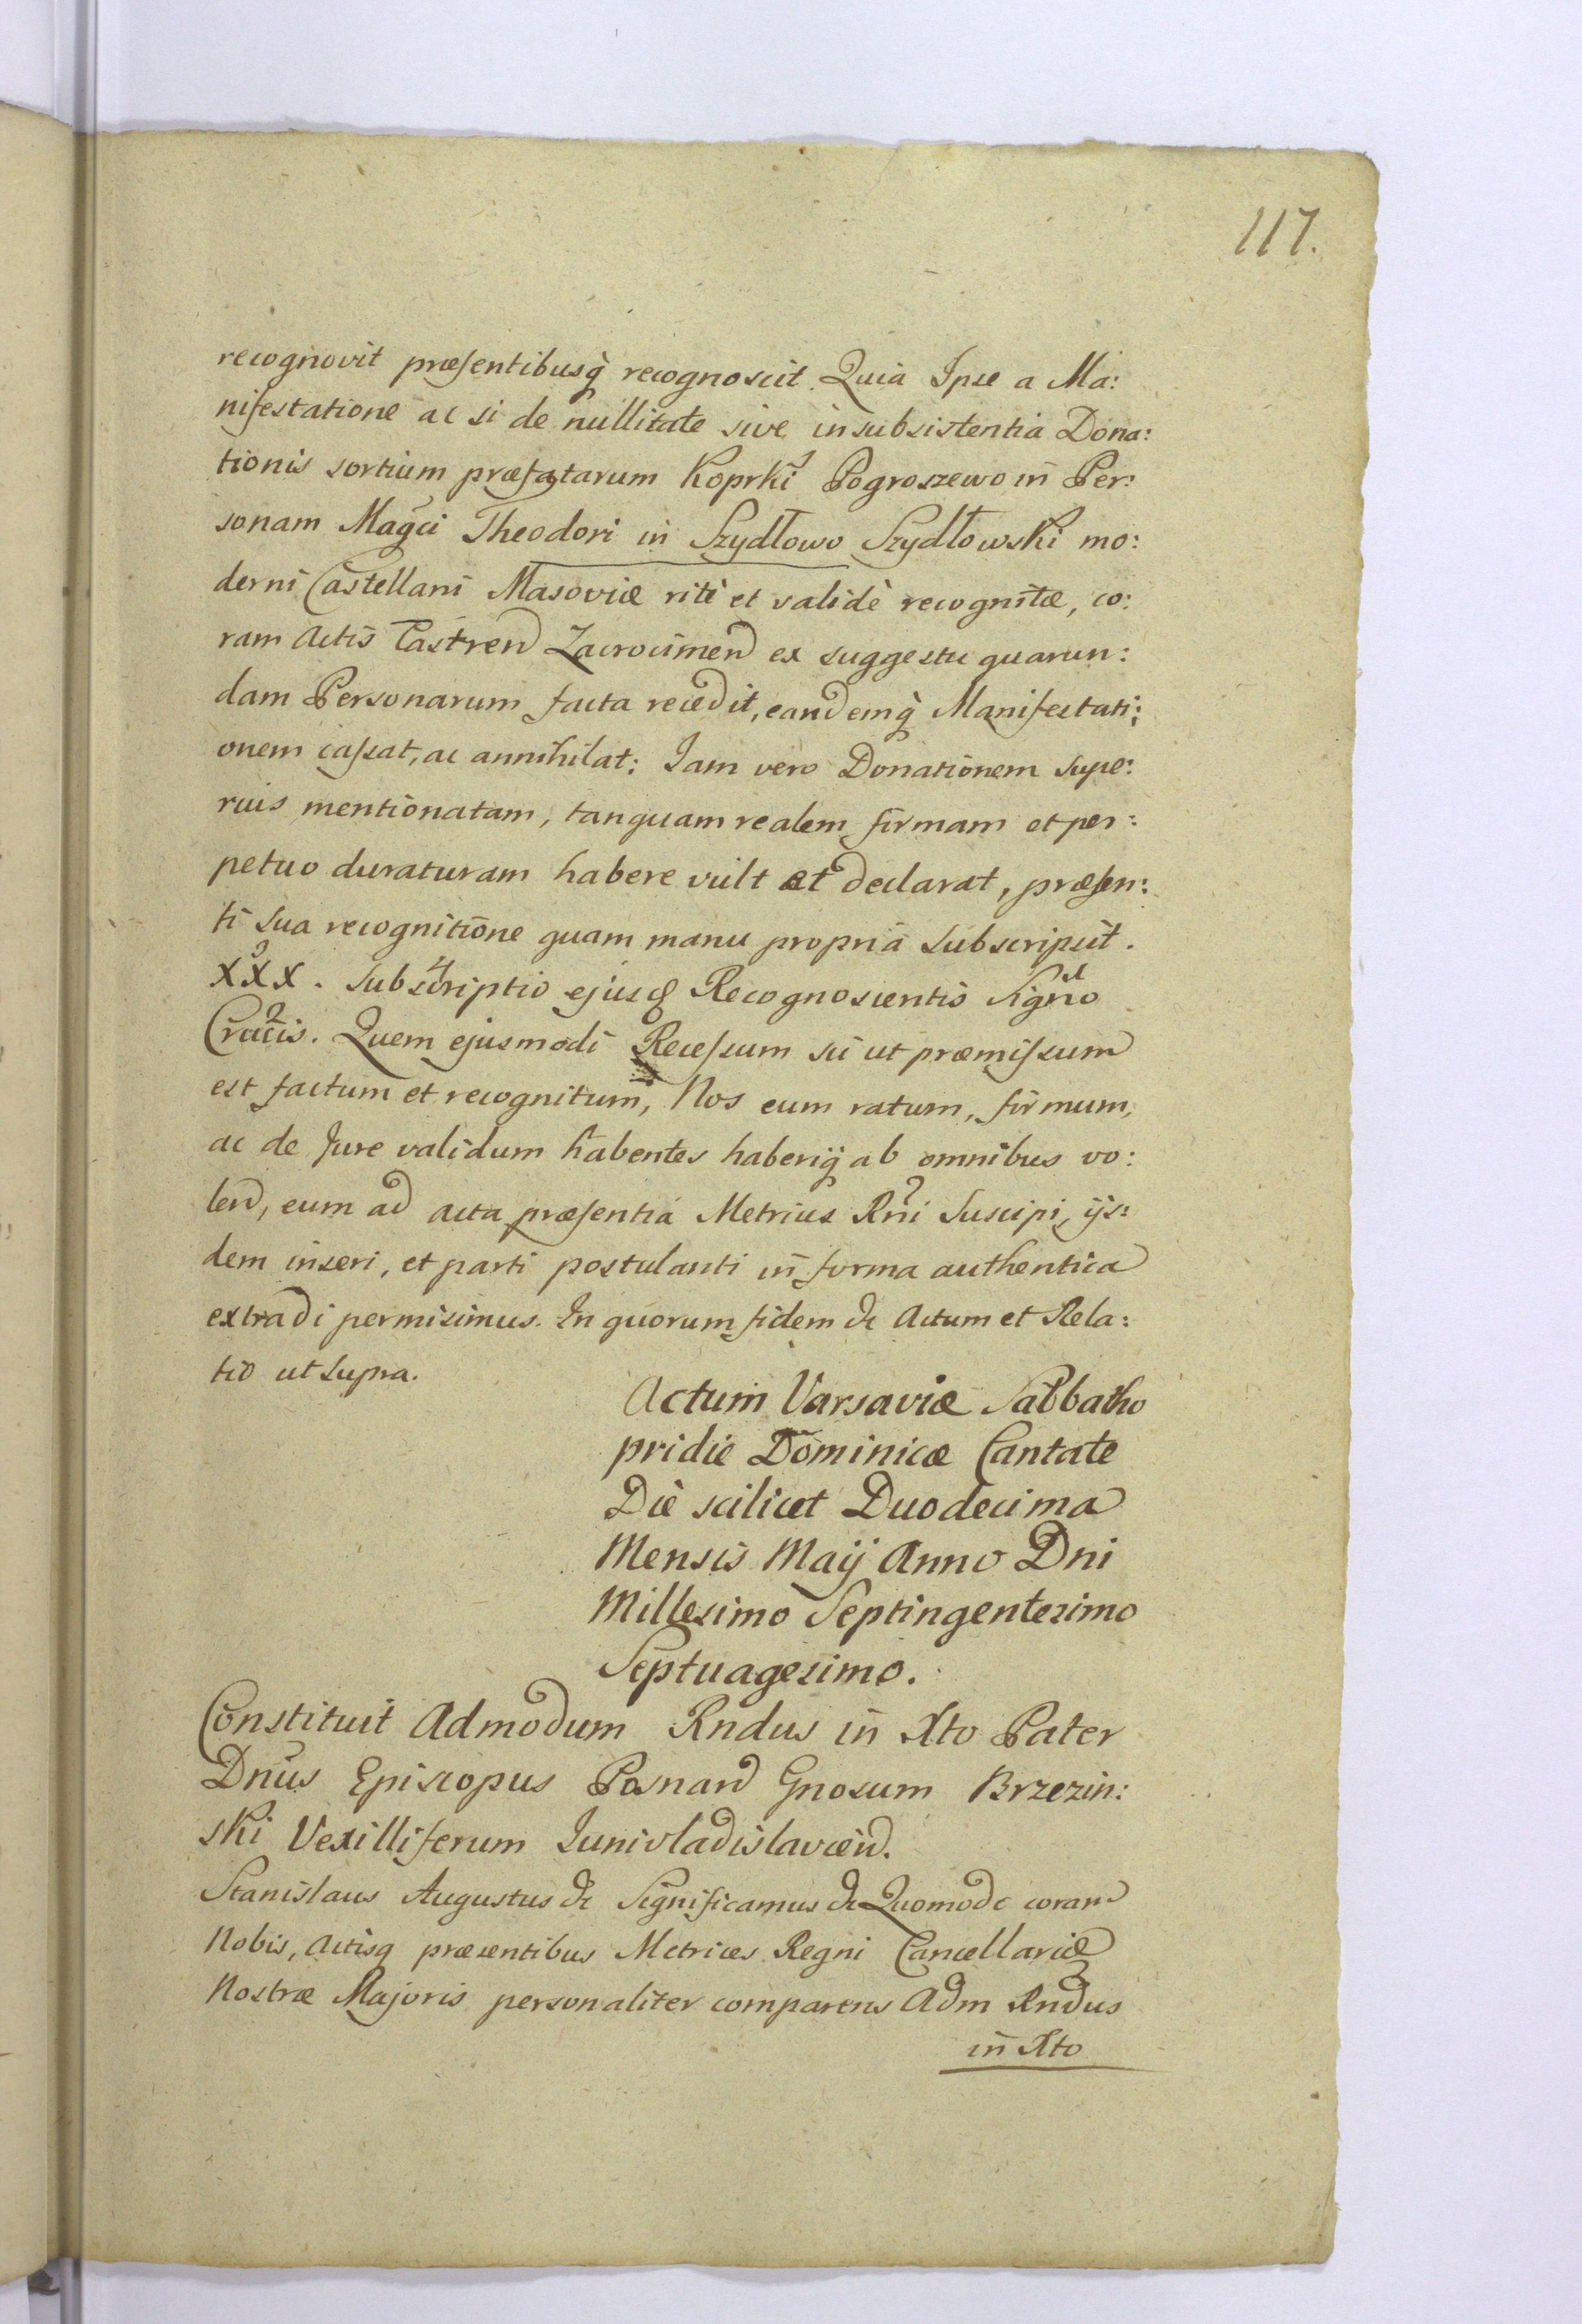 117.
recognovit præsentibusq̀ recognoscit. Quia Ipse a Ma:
nifestatione ac si de nullitate sive insubsistentia Dona:
tionis sortium præfatarum Koprki Pogroszewo in Per:
sonam Magci Theodori in Szydłowo Szydłowski mo:
derni Castellani Masoviæ ritè et validè recognitæ, co:
ram Actis Castren Zacrocimen ex suggestu quarun:
dam Personarum facta recedit, eandemq̀ Manifestati:
onem cassat, ac annihilat: Jam vero Donationem supe:
rius mentionatam, tanquam realem firmam et per:
petuo duraturam habere vult et declarat, præsen:
ti sua recognitione quam manu propria subscripsit.
XXX. Subscriptio ejusq Recognoscentis Signo
Crucis. Quem ejusmodi Recessum sic ut præmissum
est factum et recognitum, Nos eum ratum, firmum,
ac de Jure validum habentes haberiq̀ ab omnibus vo:
len, eum ad acta præsentia Metrices Rni Suscipi, ijs:
dem inseri, et parti postulanti in forma authentica
extradi permisimus. In quorum fidem &c Actum et Rela:
tio ut supra.
Actum Varsaviæ Sabbatho
pridie Dominicæ Cantate
Die scilicet Duodecima
Mensis Maij Anno Dni
Millesimo Septingentesimo
Septuagesimo.
Constituit Admodum Rndus in Xto Pater
Dnus Episcopus Posnan Gnosum Brzezin:
ski Vexilliferum Junivladislavien.
Stanislaus Augustus &c Significamus &c Quomodo coram
Nobis, Actisq præsentibus Metrices Regni Cancellariæ
Nostræ Majoris personaliter comparens Adm Rndus
in Xto